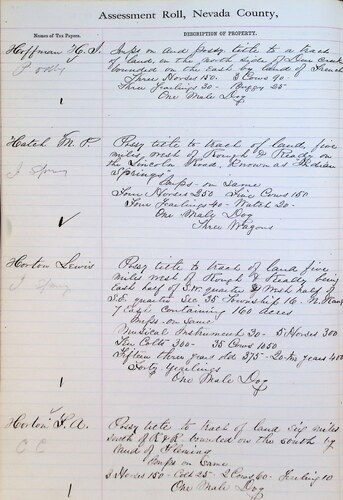 Assessment Roll, Nevada County,
Names of Tax Payers.
DESCRIPTION OF PROPERTY.
Hoffman H. I. Imps on and possy title to a tract
of land, on the north side of Deer Creek
bounded on the East by land of French
Three Horses 150. 3 Cows 90.
Three Yearlings 30 - Buggy 25
One Male Dog
1
Hatch M. P. Possy title to tract of land, five
miles west of Rough & Ready on
the Lincoln Road. Known as "Indian
Springs"
Imps. on same
Four Horses 250 Five Cows 150
Four Yearlings 40 - Watch 20 -
One Male Dog
Three Wagons
Horton Lewis Possy title to tract of land five
miles west of Rough & Ready being
East half of S.W. quarter & West half of
S.E. quarter Sec 35 Township 16 - N. Range
7 East containing 160 acres
Imps on same
Musical Instrument 30 - 5 Horses 300
Ten Colts 300 - 35 Cows 1050
Fifteen three years old 375 - 20 two years 400
Forty Yearlings
One Male Dog
1
Horton A. Possy title to tract of land six miles
south of R & R. bounded on the south by
land of Fleming
Imps on same
3 Horses 150 - Colt 25 - 2 Cows 60 - Yearling 10
One Male Dog
C C
1